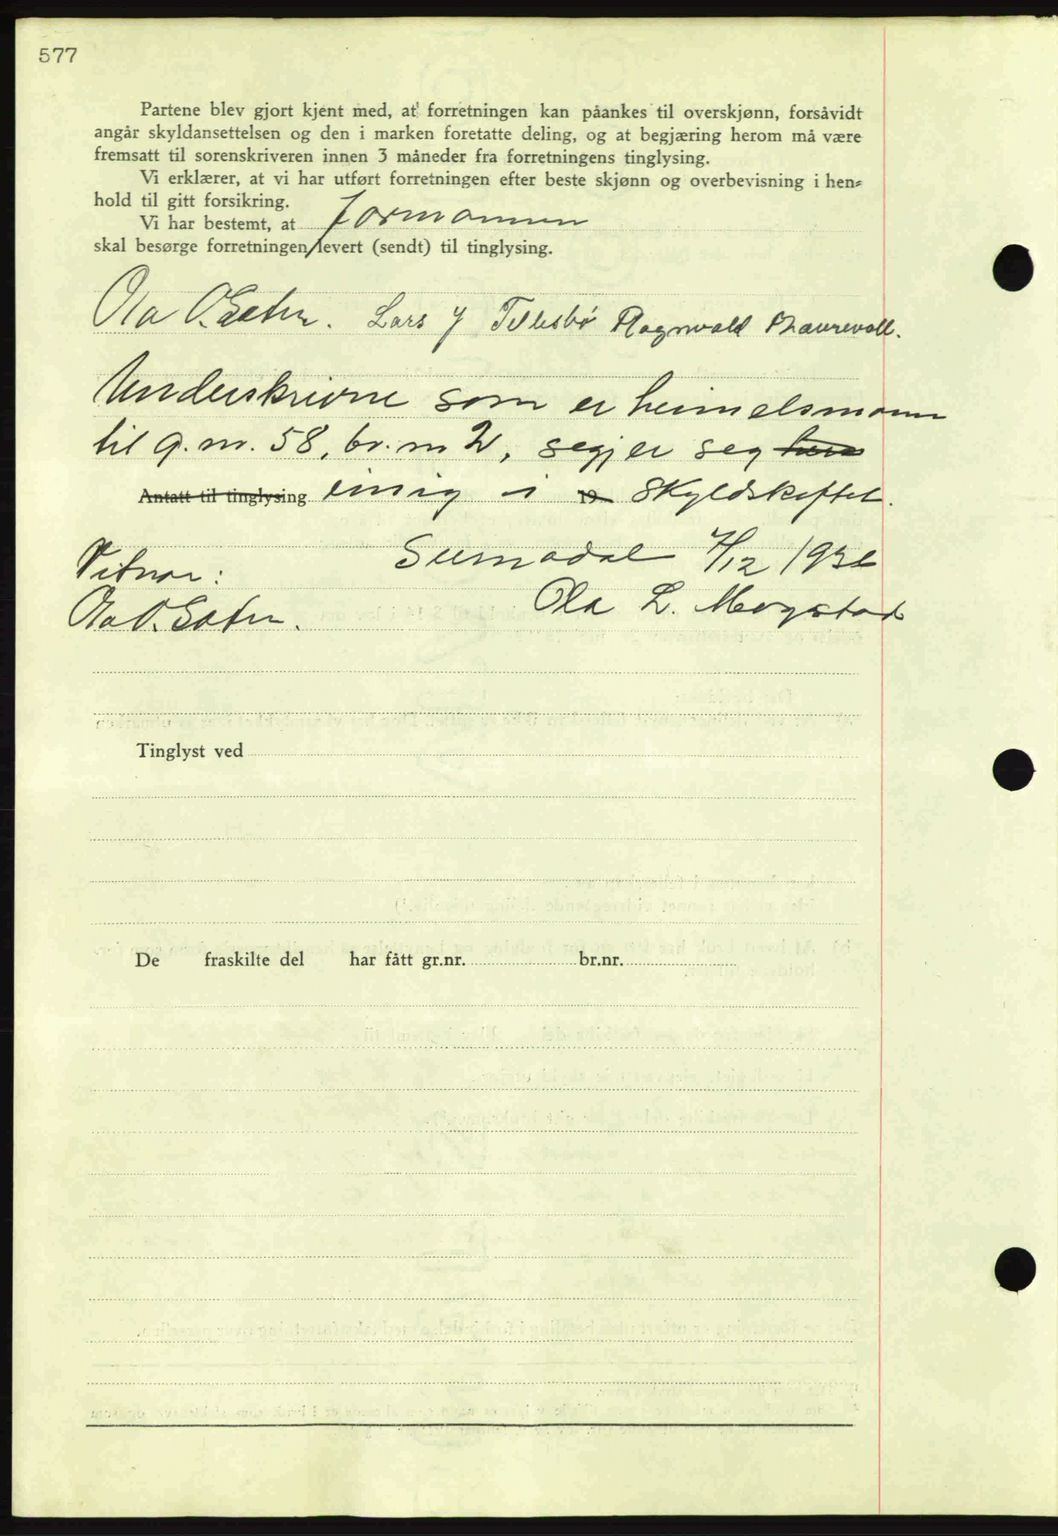 577
Partene blev gjort kjent med, at forretningen kan påankes til overskjønn, forsåvidt
angår skyldansettelsen og den i marken foretatte deling, og at begjæring herom må være
fremsatt til sorenskriveren innen 3 måneder fra forretningens tinglysing.
Vi erklærer, at vi har utført forretningen efter beste skjønn og overbevisning i hen-
hold til gitt forsikring.
Vi har bestemt, at formannen
skal besørge forretningen levert (sendt) til tinglysing.
Ola O. Sæter. Lars J Tellesbø Ragnvald
Underskrivne som er heimelsmann
til g.nr. 58, br.nr 2, segjer seg
Antatt til tinglysing einig i 19 skyldskiftet.
Surnadal 7/12 1936
Vitnar:
Ola L. Mogstad
Ola O. Sæter.
Tinglyst ved
De fraskilte del har fått gr.nr. br.nr.